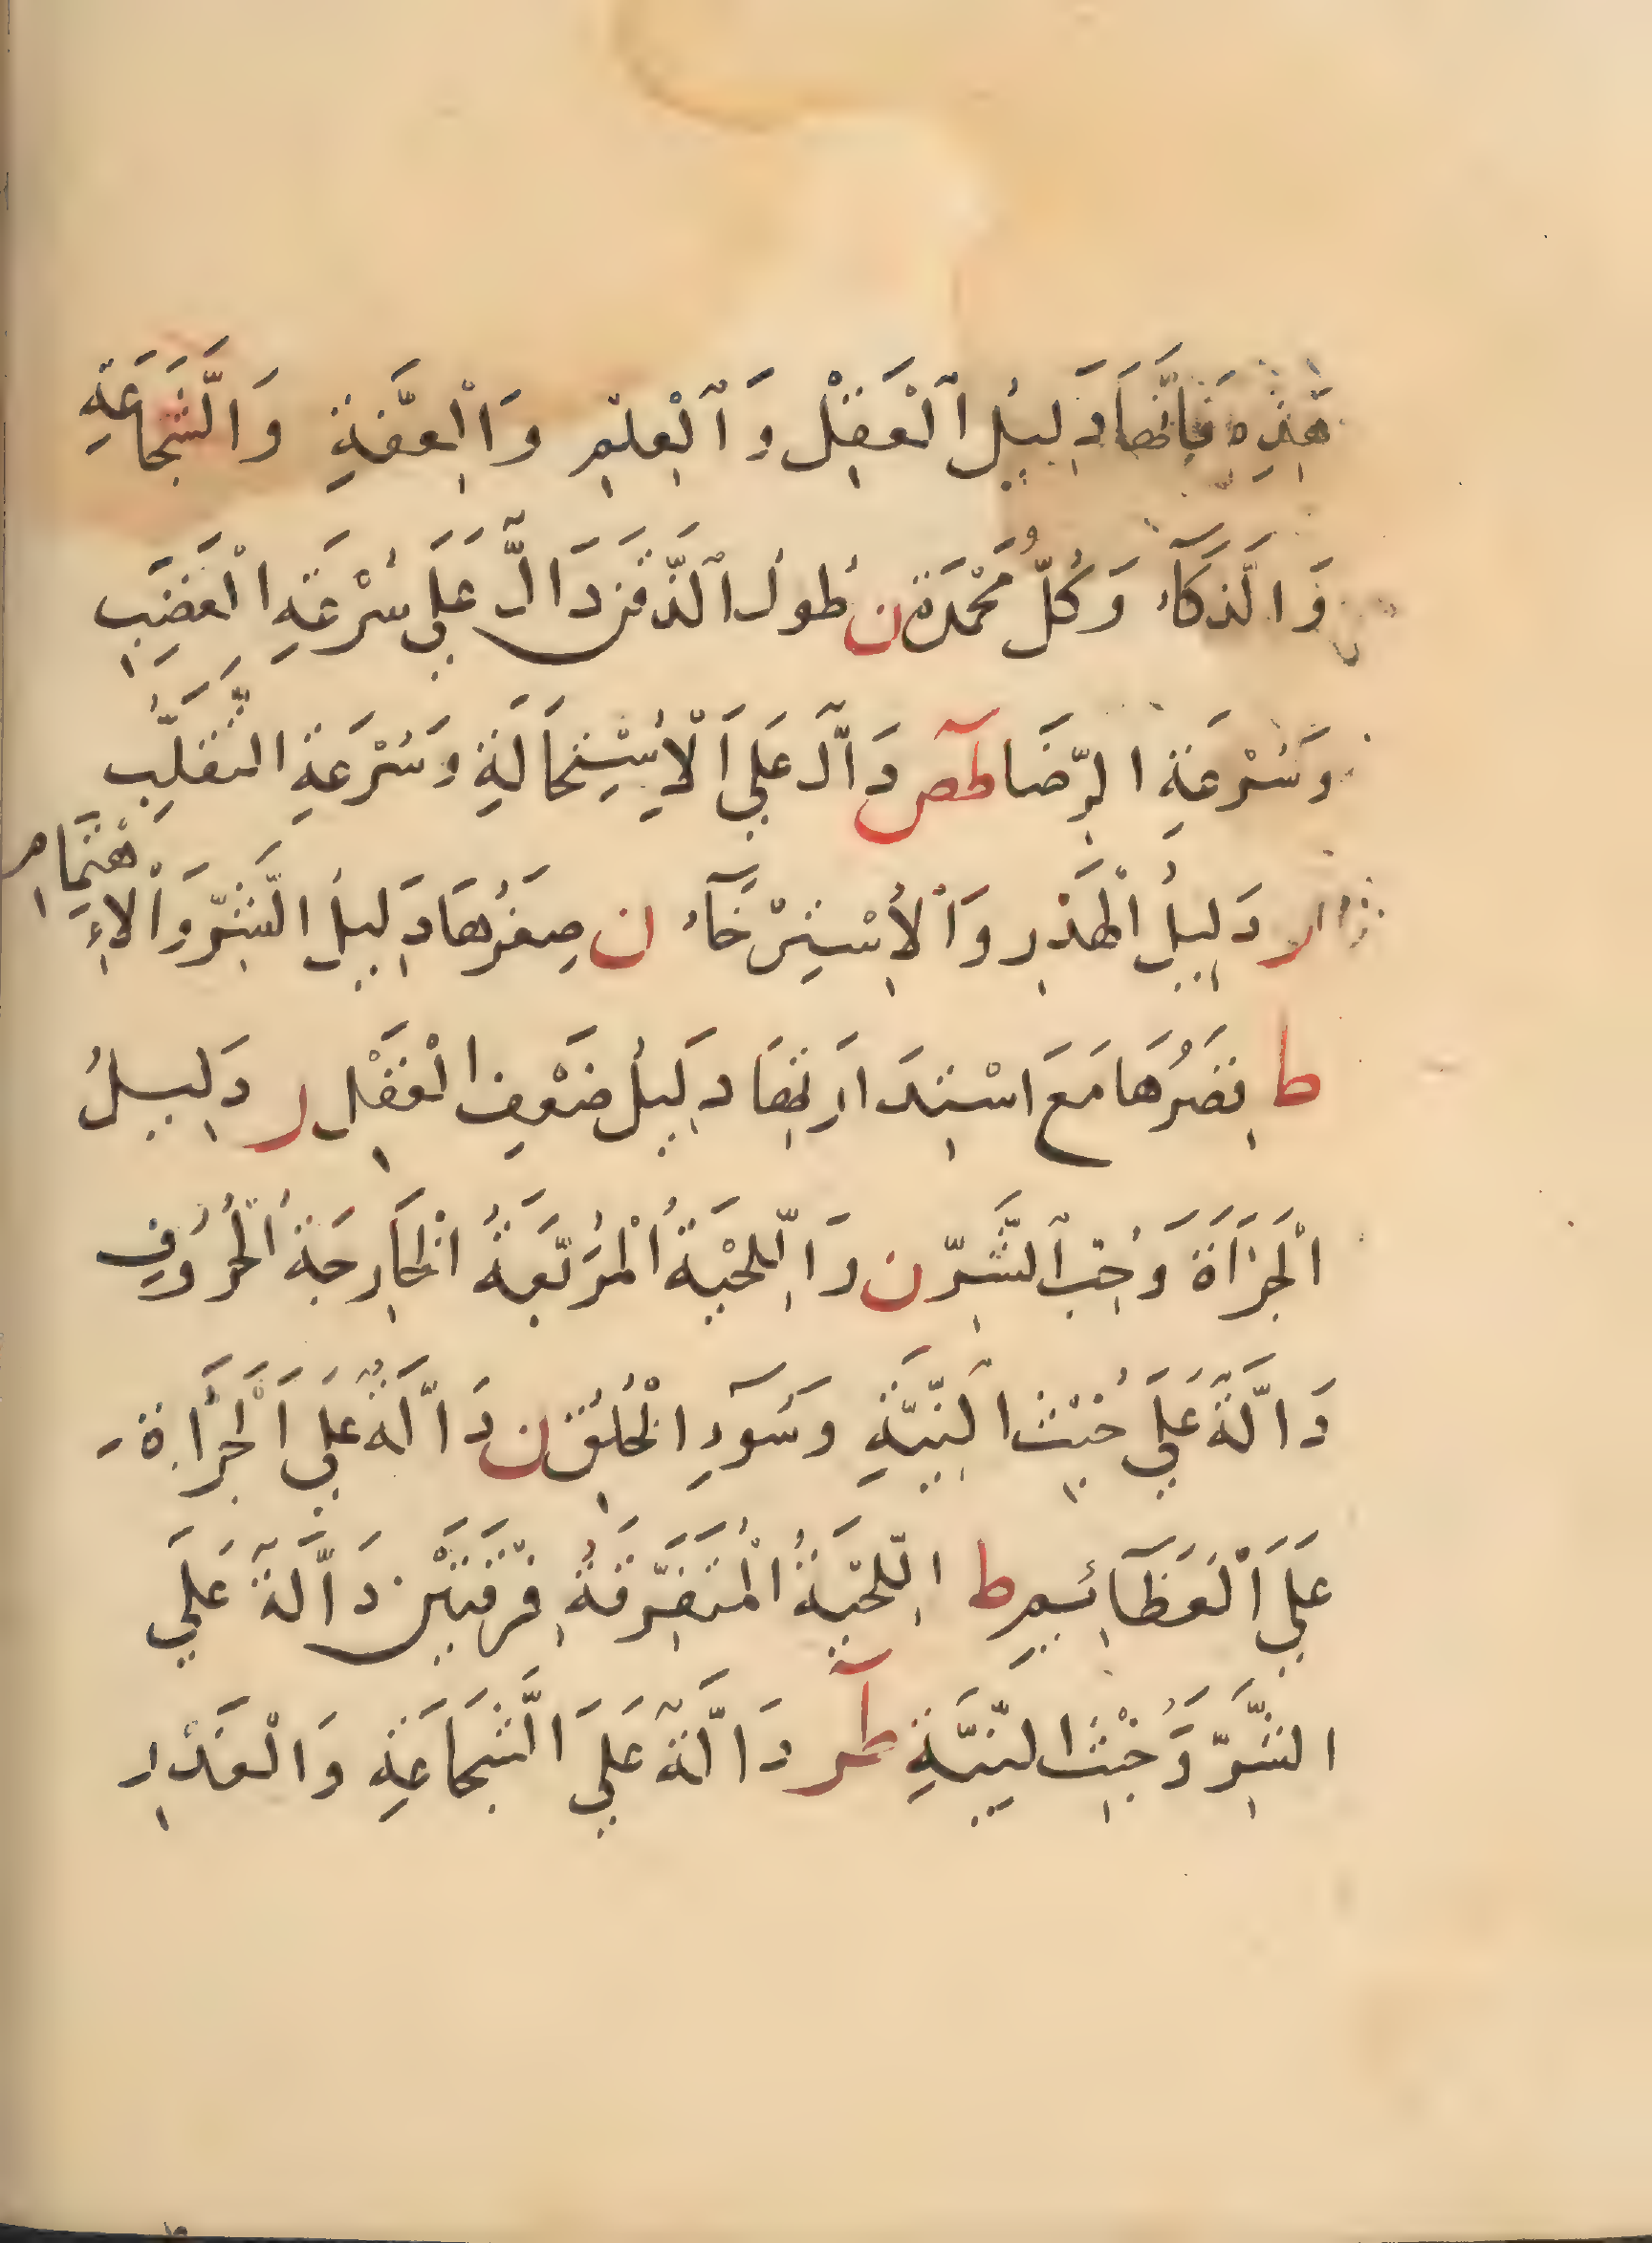 هَذِهِ فَإِنَّهَا دَلِيلُ الْعَقْلِ وَالْعِلْمِ وَالْعِفَّةِ وَالشَّجَاعَةِ
وَالذَّكَآءِ وَكُلِّ مُحَمَّدَةٍ ن طُولُ الذَّقَنِ دَالٌّ عَلَي سُرْعَةِ الْغَضَبِ
وَسُرْعَةِ الرِّضَا طص دَالٌّ عَلَي الْاِسْتِحَالَةِ وَسُرْعَةِ التَّقَلُّبِ
ر دَلِيلُ الْهَذَرِ وَالْاِسْتِرْخَآءِ ن صِغَرُهَا دَلِيلُ الشَّرِّ وَالْاِهْتِمَامِ
ط قِصَرُهَا مَعَ اسْتِدَارَتِهَا دَلِيلُ ضَعْفِ الْعَقْلِ ر دَلِيلُ
الْجَرَاَةِ وَحُبِّ الشَّرِّ ن وَاللِّحْيَةُ الْمُرَبَّعَةُ الْخَارِجَةُ الْحُرُوفِ
دَالَّةٌ عَلَي خُبْثِ النِّيَّةِ وَسُوٓءِ الْخُلُقِ ن دَالَّةٌ عَلَي الْجَرَاَةِ
عَلَي الْعَظَآئِمِ ط اللِّحْيَةُ الْمُتَفَرِّقَةُ فِرْقَتَيْنِ دَالَّةٌ عَلَي
الشَّرِّ وَخُبْثِ النِّيَّةِ طر دَالَّةٌ عَلَي الشَّجَاعَةِ وَالْغَدْرِ